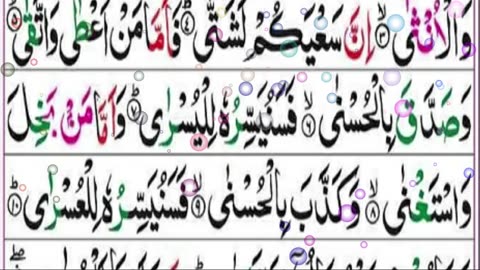 وَالْاُنْثٰٓى ۙ﴿۳﴾ اِنَّ سَعْيَكُمْ لَشَتّٰى ؕ﴿۴﴾ فَاَمَّا مَنْ اَعْطٰى وَاتَّقٰى ۙ﴿۵﴾
وَصَدَّقَ بِالْحُسْنٰى ۙ﴿۶﴾ فَسَنُيَسِّرُهٗ لِلْيُسْرٰى ؕ﴿۷﴾ وَاَمَّا مَنْۢ بَخِلَ
وَاسْتَغْنٰى ۙ﴿۸﴾ وَكَذَّبَ بِالْحُسْنٰى ۙ﴿۹﴾ فَسَنُيَسِّرُهٗ لِلْعُسْرٰى ؕ﴿۱۰﴾